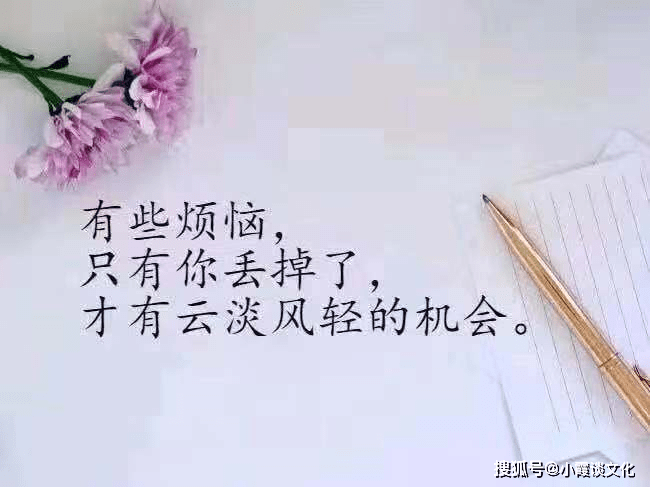 有些烦恼，
只有你丢掉了，
才有云淡风轻的机会。
搜狐号@小霞淡文化